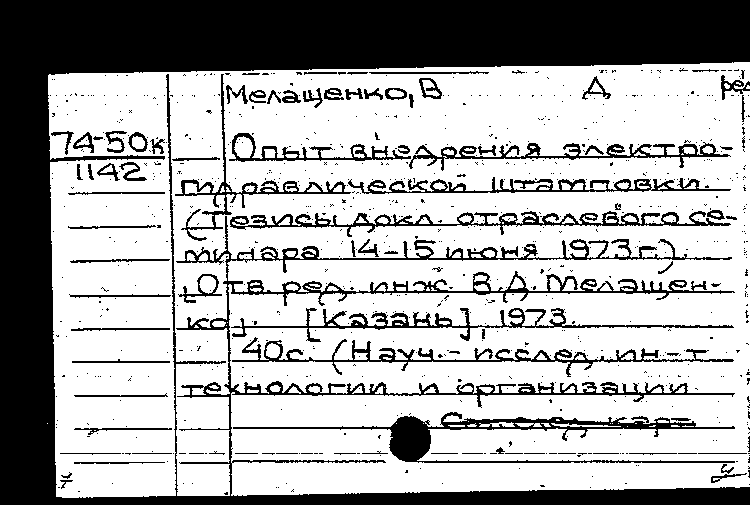 Мелащенко, В Д ред
74-50к
1142
Опыт внедрения электро-
гидравлической штамповки.
(Тезисы докл. отраслевого се-
минара 14-15 июня 1973 г.).
[Отв. ред. инж. В.Д. Мелащен-
ко]. [Казань], 1973.
40с. (Науч.-исслед. ин-т
технологии и организации
См. след. карт